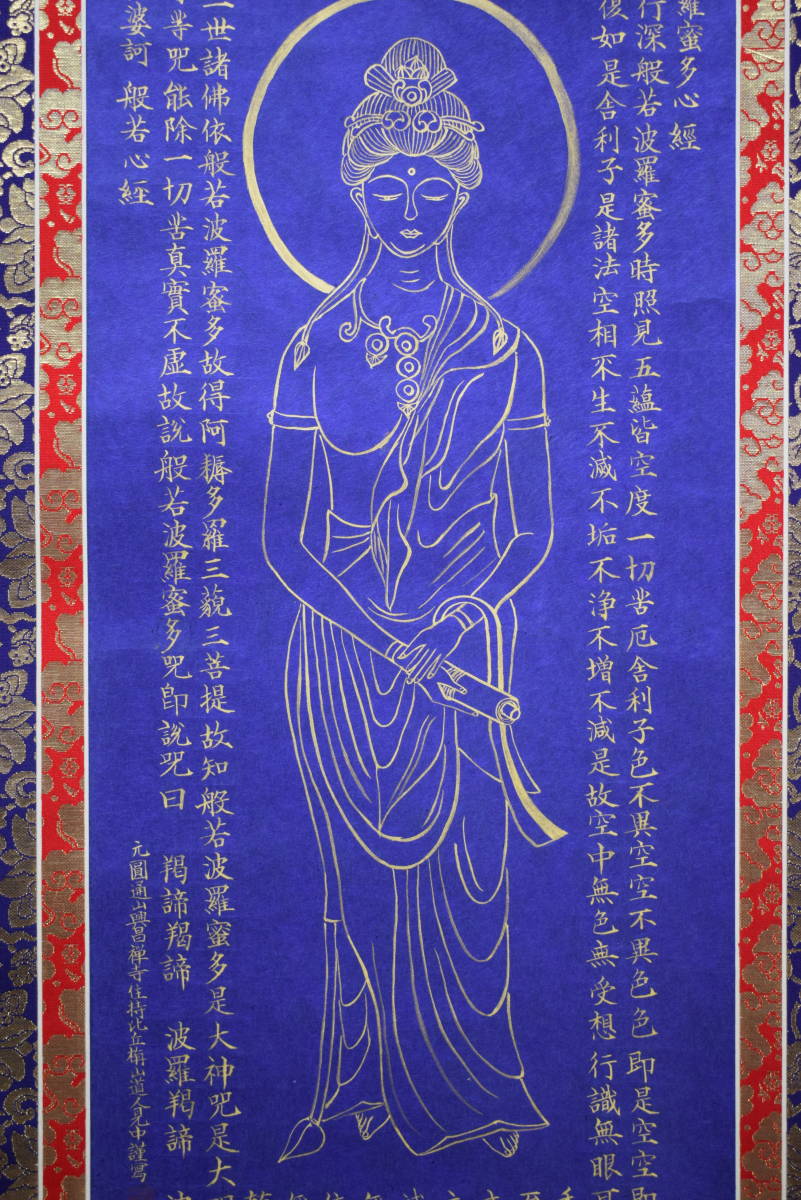 羅蜜多心經
行深般若波羅蜜多時照見五蘊皆空度一切苦厄舍利子色不異空空不異色色即是空空即
復如是舍利子是諸法空相不生不滅不垢不浄不增不減是故空中無色無受想行識無眼耳
三世諸佛依般若波羅蜜多故得阿耨多羅三藐三菩提故知般若波羅蜜多是大神咒是大
等咒能除一切苦真實不虛故說般若波羅蜜多咒即說咒曰 羯諦羯諦 波羅羯諦 波
婆訶 般若心經
元圓通山興昌禅寺住持比丘梅山道
謹寫